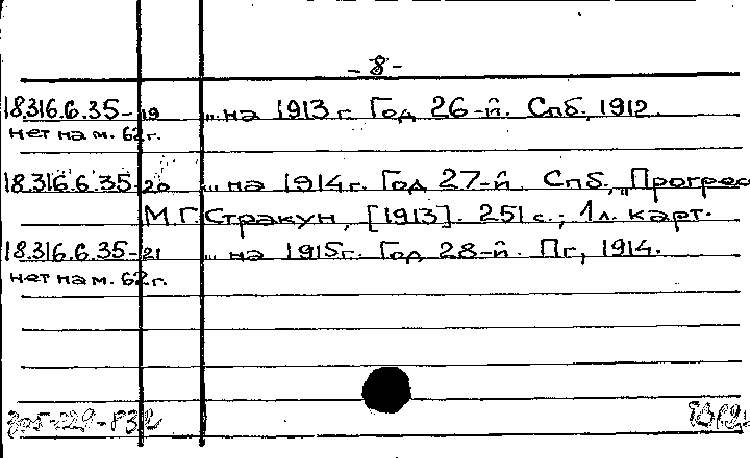 - 8 -
18.316.6.35-19 „ на 1913 г. Год 26-й. Спб, 1912.
нет на м. 62 г.
18.316.6.35-20 „ на 1914г. Год 27-й. Спб, „Прогрес
М.Г. Стракун, [1913]. 251 с.; 1л. карт.
18.316.6.35-21 „ на 1915г. Год 28-й. Пг, 1914.
нет на м. 62 г.